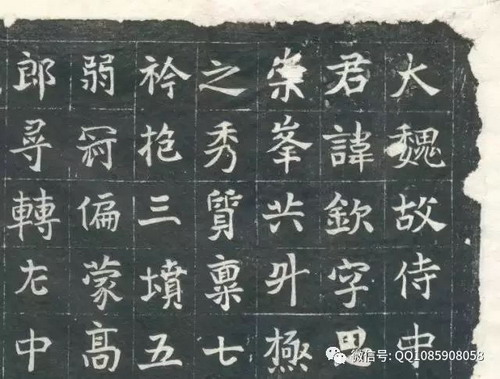 大魏故侍中
君諱欽字
崇峯共升極
之秀質稟七
衿抱三墳五
弱冠偏蒙髙
郎尋轉左中
微信号: QQ1085908058